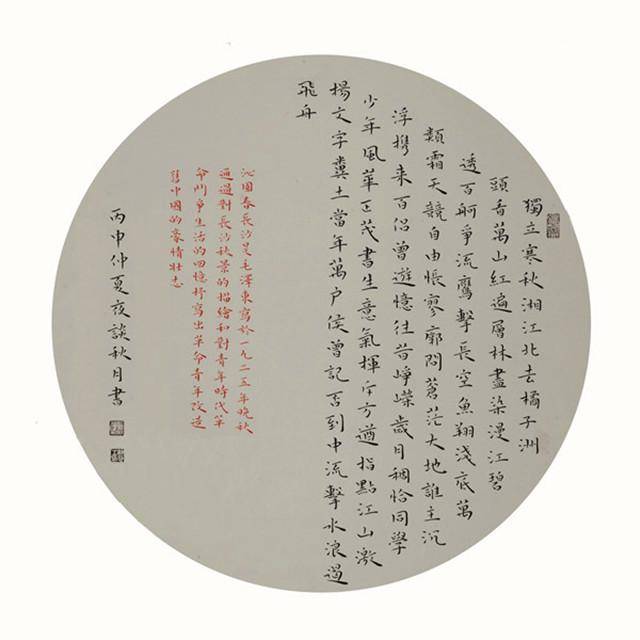 獨立寒秋湘江北去橘子洲
頭看萬山紅遍層林盡染漫江碧
透百舸爭流鷹擊長空魚翔淺底萬
類霜天競自由悵寥廓問蒼茫大地誰主沉
浮携来百侶曾遊憶往昔崢嶸歲月稠恰同學
少年風華正茂書生意氣揮斥方遒指點江山激
揚文字糞土當年萬户侯曾記否到中流擊水浪遏
飛舟
沁園春長沙是毛澤東寫於一九二五年晚秋
通過對長沙秋景的描繪和對青年時代革
命鬥爭生活的回憶抒寫出革命青年改造
舊中國的豪情壯志
丙申仲夏夜談秋月書